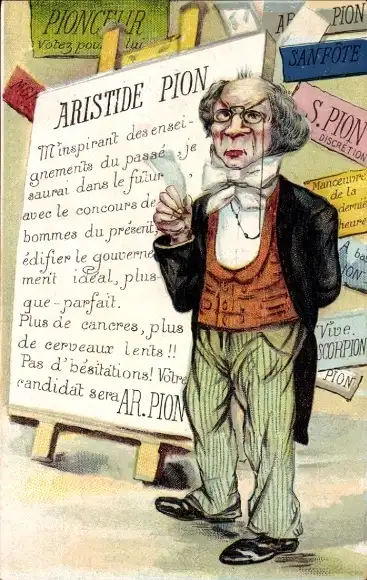 PIONCEUR
Votez pour lui
AR. PION
SANFÔTE
S. PION
DISCRÉTION
Manœuvre
de la
dernière
heure
A bas
ION
Vive
SCORPION
PION
ARISTIDE PION
M'inspirant des ensei-
gnements du passé, je
saurai dans le futur,
avec le concours de
hommes du présent,
édifier le gouverne-
ment idéal, plus-
que-parfait.
Plus de cancres, plus
de cerveaux lents!!
Pas d'hésitations! Votre
candidat sera AR. PION